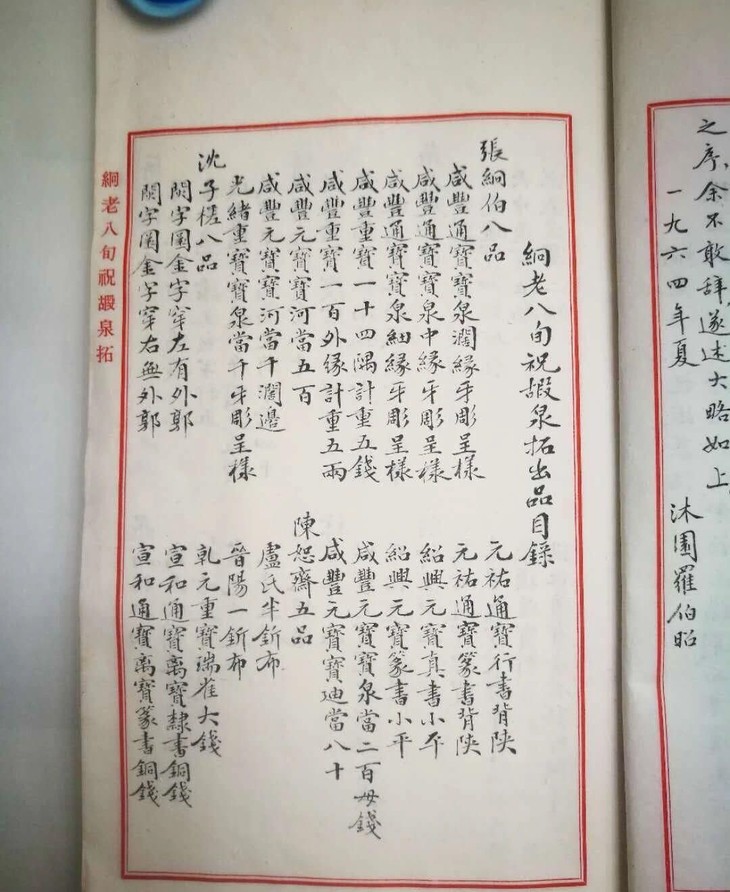 之序余不敢辞遂述大略如上
一九六四年夏
沐園羅伯昭
絅老八旬祝嘏泉拓出品目錄
張絅伯八品
咸豐通寶寶泉濶緣牙彫呈樣
咸豐通寶寶泉中緣牙彫呈樣
咸豐通寶寶泉細緣牙彫呈樣
咸豐重寶一十四隅計重五錢
咸豐重寶一百外緣計重五兩
咸豐元寶寶河當五百
咸豐元寶寶河當千濶邊
光緒重寶寶泉當千牙彫呈樣
沈子槎八品
閼字圜金字穿左有外郭
閼字圜金字穿右無外郭
元祐通寶行書背陝
元祐通寶篆書背陝
紹興元寶真書小平
紹興元寶篆書小平
咸豐元寶寶泉當二百母錢
咸豐元寶寶迪當八十
陳恕齋五品
盧氏半釿布
晉陽一釿布
乾元重寶瑞雀大錢
宣和通寶离寶隸書銅錢
宣和通寶离寶篆書銅錢
絅老八旬祝嘏泉拓